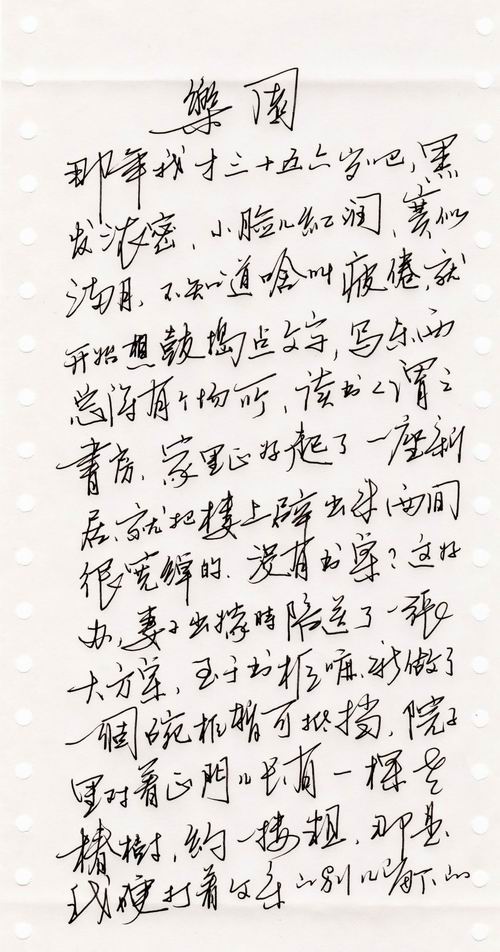 樂園
那年我才三十五六岁吧，黑
发浓密，小脸儿红润，賽似
满月，不知道啥叫疲倦，就
开始想鼓捣点文字，写东西
总得有个场所，读书人谓之
書房，家里正好起了一座新
居，就把楼上辟出来两间
很宽绰的，没有书案？这好
办，妻子出嫁時陪送了一張
大方案，至于书柜嘛，新做了
一個碗柜暂可抵挡，院子
里对着正門儿长有一棵老
椿樹，约一搂粗，那是
我硬打着父亲的别儿留下的